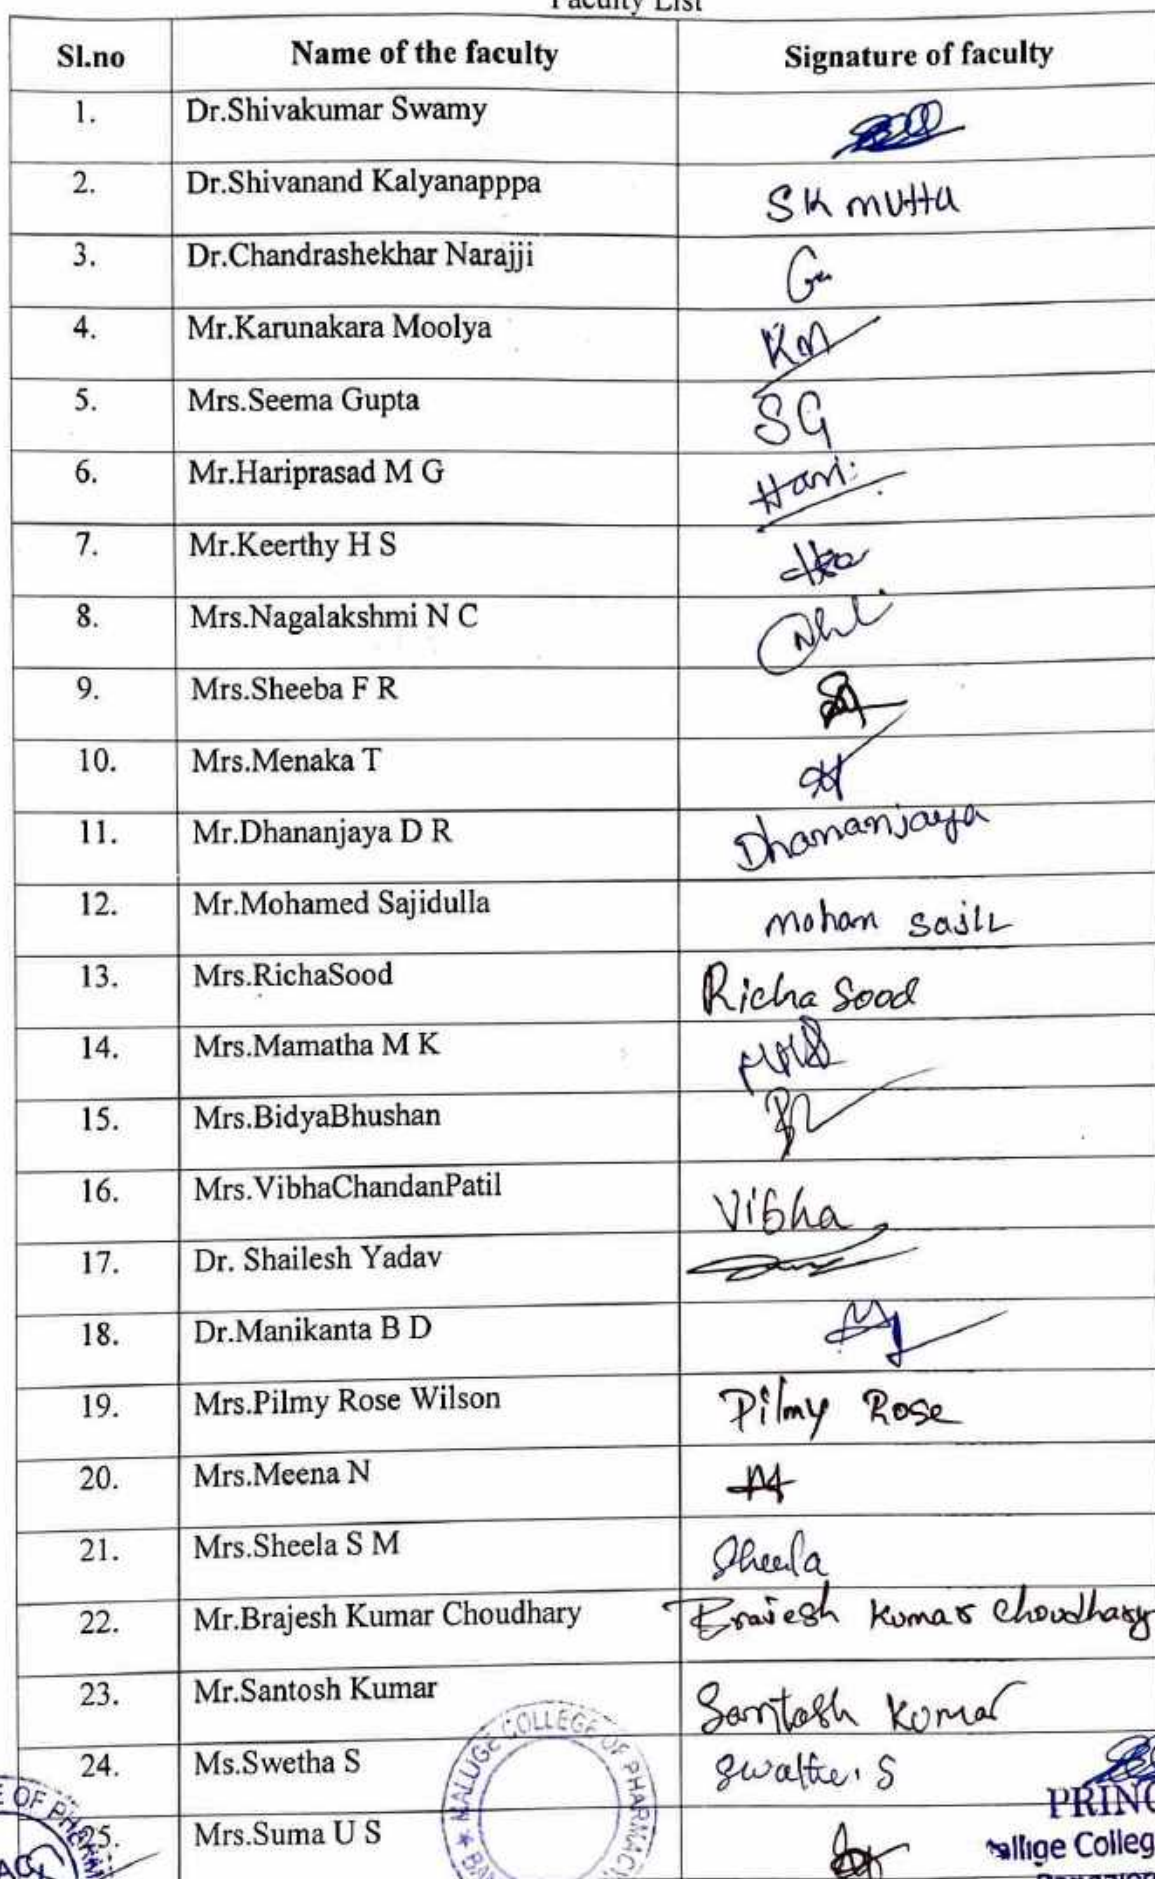 Faculty List
Sl.no Name of the faculty Signature of faculty
1. Dr.Shivakumar Swamy
2. Dr.Shivanand Kalyanapppa SK mutta
3. Dr.Chandrashekhar Narajji
4. Mr.Karunakara Moolya KM
5. Mrs.Seema Gupta SG
6. Mr.Hariprasad M G Hari
7. Mr.Keerthy H S
8. Mrs.Nagalakshmi N C
9. Mrs.Sheeba F R
10. Mrs.Menaka T
11. Mr.Dhananjaya D R Dhananjaya
12. Mr.Mohamed Sajidulla
13. Mrs.RichaSood Richa Sood
14. Mrs.Mamatha M K
15. Mrs.BidyaBhushan
16. Mrs.VibhaChandanPatil Vibha
17. Dr. Shailesh Yadav
18. Dr.Manikanta B D
19. Mrs.Pilmy Rose Wilson Pilmy Rose
20. Mrs.Meena N
21. Mrs.Sheela S M Sheela
22. Mr.Brajesh Kumar Choudhary Brajesh Kumar Choudhary
23. Mr.Santosh Kumar Santosh Kumar
24. Ms.Swetha S
25. Mrs.Suma U S
MALLIGE COLLEGE OF PHARMAC
PRINC
allige Colleg